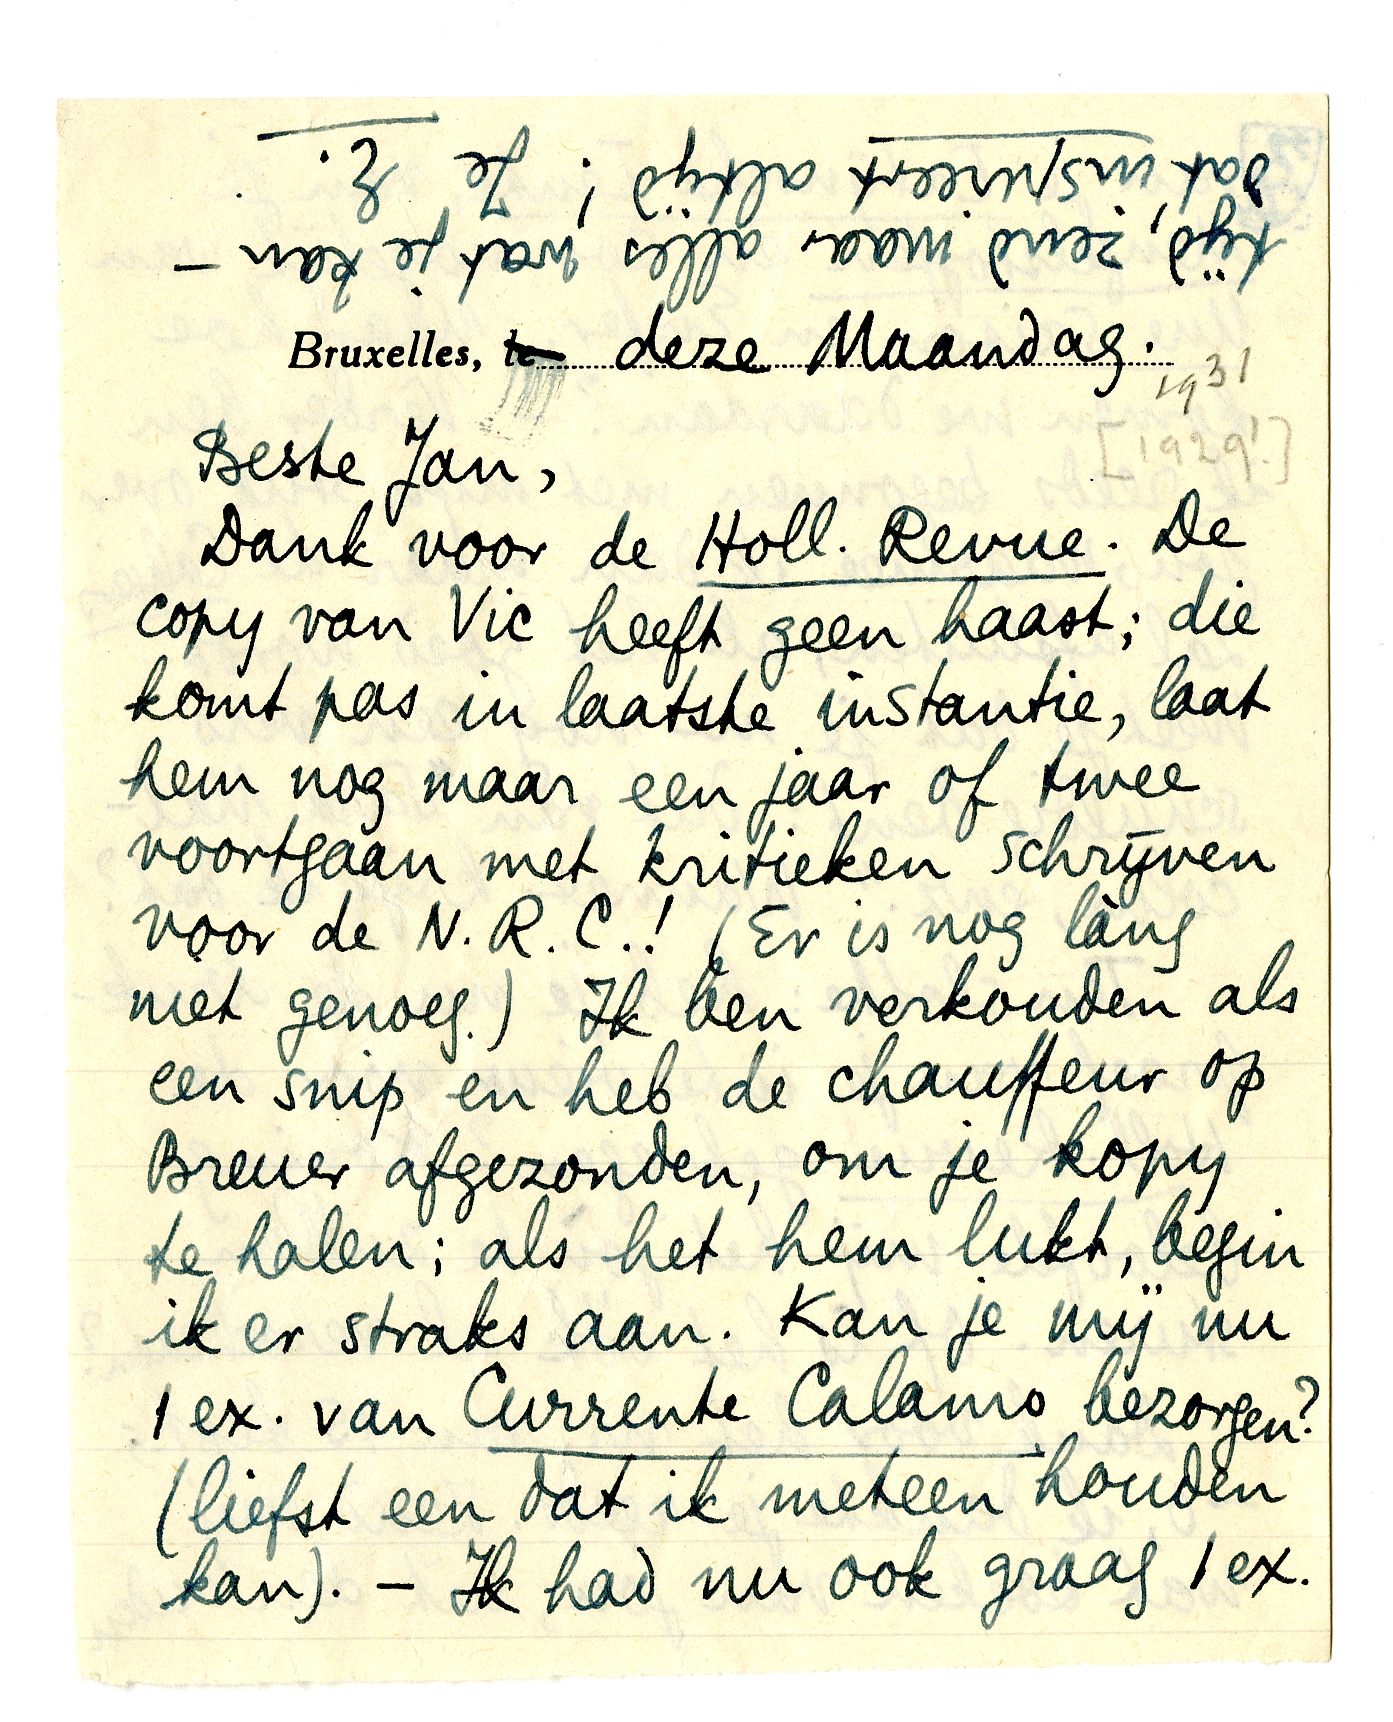 tijd, zend maar alles wat je kan —
dat inspireert altijd! Je E.
Bruxelles, le deze Maandag.
1931
[1929!]
Beste Jan,
Dank voor de Holl. Revue. De
copy van Vic heeft geen haast; die
komt pas in laatste instantie, laat
hem nog maar een jaar of twee
voortgaan met kritieken schrijven
voor de N.R.C.! (Er is nog làng
niet genoeg.) Ik ben verkouden als
een snip en heb de chauffeur op
Breuer afgezonden, om je kopy
te halen; als het hem lukt, begin
ik er straks aan. Kan je mij nu
1 ex. van Currente Calamo bezorgen?
(liefst een dat ik meteen houden
kan). — Ik had nu ook graag 1 ex.